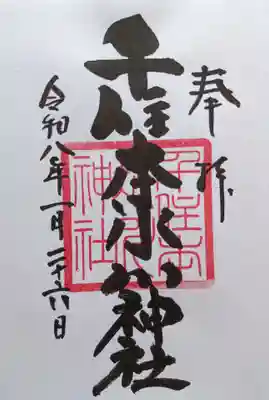 奉拝
千住本氷川神社
千住本氷川神社
令和八年一月二十六日